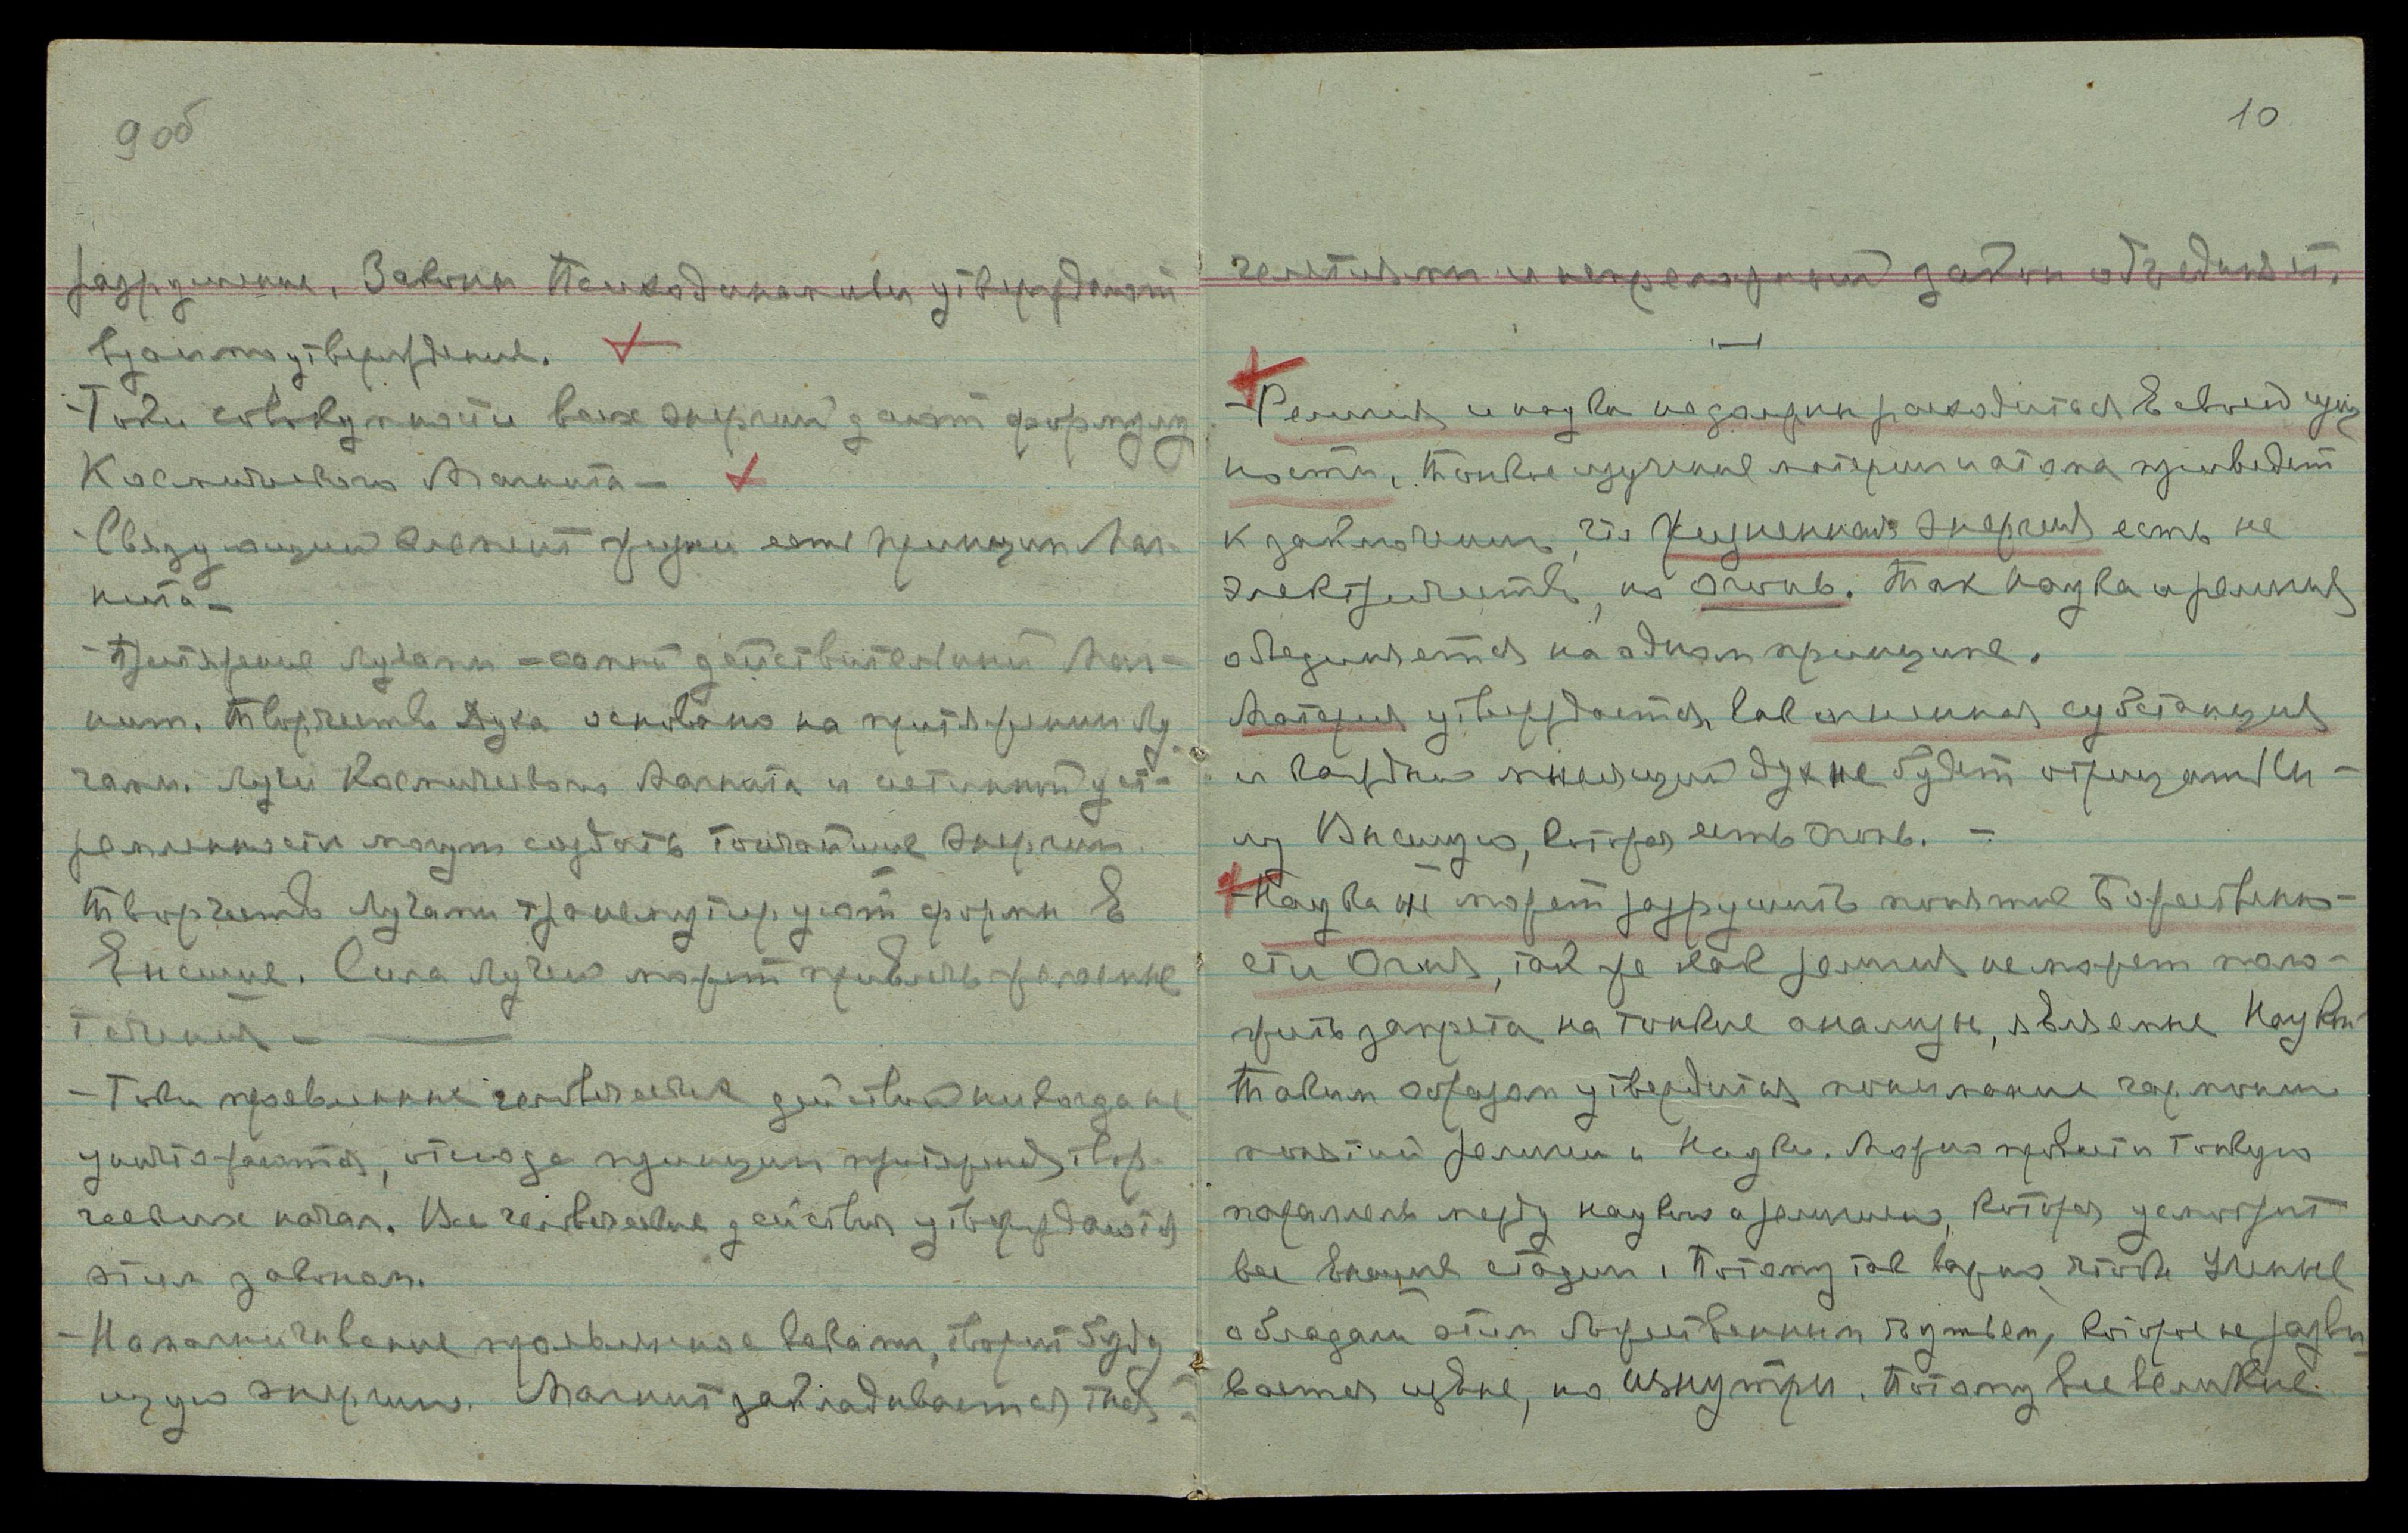 9 об
разрушение. Законы Психодинамики утверждают
взаимоутверждение.
-Токи совокупности всех энергий дают формулу
Космического Магнита-
-Связующий элемент жизни есть принцип Маг-
нита-
-Притяжение Лучами - самый действительный Маг-
нит. Творчество Духа основано на притяжении Лу
чами. Лучи Космического Магнита и истинной уст-
ремленности могут создать тончайшие энергии.
Творчество Лучами трансмутирует формы в
высшие. Сила Лучей может привлечь
течения -
-Токи проявленные человеческих действий никогда не
уничтожаются, отсюда принцип притяжения твор-
ческих начал. Все человеческие действия утверждаются
этим законом.
-Намагничивание проявленное веками, творит буду
щую энергию. Магнит закладывается
10
и непреложный закон объединяет.
-Религия и наука не должны расходиться в своей сущ
ности. Тонкое изучение материи и атома приведет
к заключению, что жизненная энергия есть не
электричество, но огонь. Так наука и религия
объединяется на одном принципе.
Материя утверждается, как огненная субстанция
и каждый мыслящий дух не будет отрицать Си-
лу Высшую, которая есть Огонь. -
-Наука не может разрушить понятие Божественно-
сти Огня, так же как религия не может нало-
жить запрета на тонкие анализы, являемые Наукой
Таким образом утвердится понимание гармонии
понятий религии и Науки. Можно провести тонкую
параллель между наукою и религиею, которая
все высшие стадии. Потому так важно чтобы Ученые
обладали этим Божественным чутьем, которое не разви
вается извне, но изнутри. Потому все великие